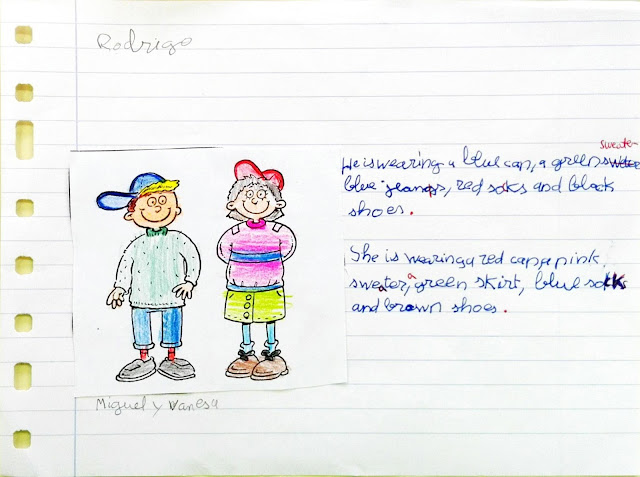 Rodrigo
sweater
He is wearing a blue cap, a green
blue jeans, red socks and black
shoes.
She is wearing a red cap, a pink
sweater, a green skirt, blue sock
and brown shoes.
Miguel y Vanesa